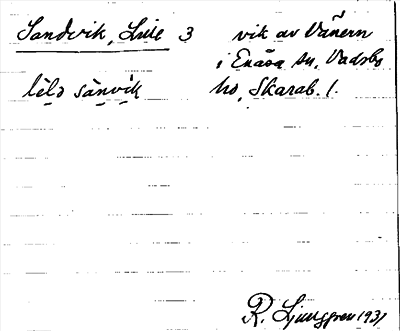 Sandvik, Lille 3 vik av Vänern
i Enåsa sn, Vadsbo
lɛ̀lə sánvik hd, Skarab. l.
R. Ljunggren 1931